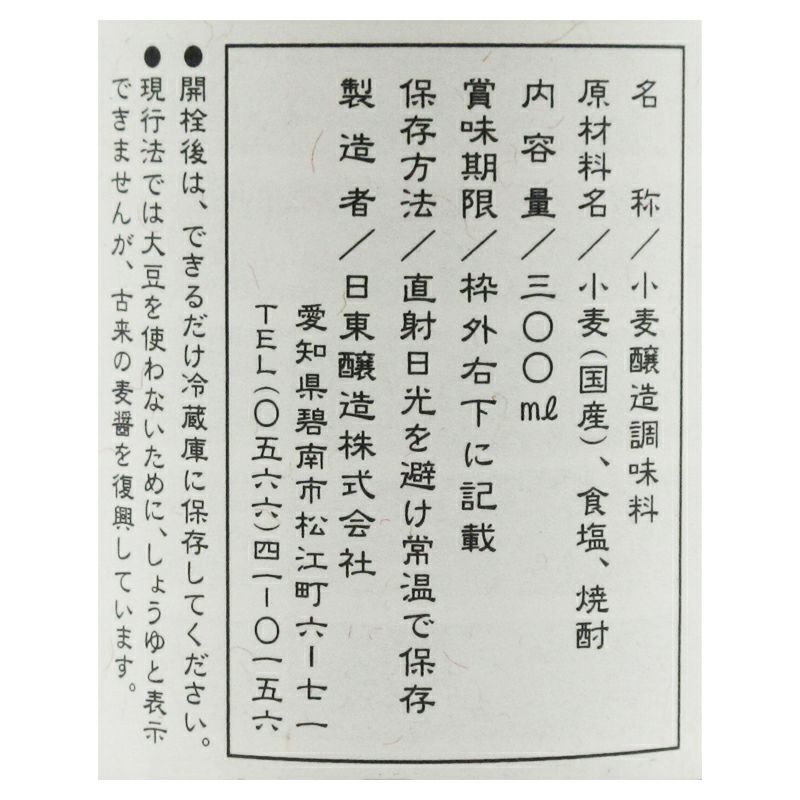 名称/小麦醸造調味料
原材料名/小麦(国産)、食塩、焼酎
内容量/三〇〇㎖
賞味期限/枠外右下に記載
保存方法/直射日光を避け常温で保存
製造者/日東醸造株式会社
愛知県碧南市松江町六ー七一
TEL(〇五六六)四一ー〇一五六
●開栓後は、できるだけ冷蔵庫に保存してください。
●現行法では大豆を使わないために、しょうゆと表示
できませんが、古来の麦醤を復興しています。